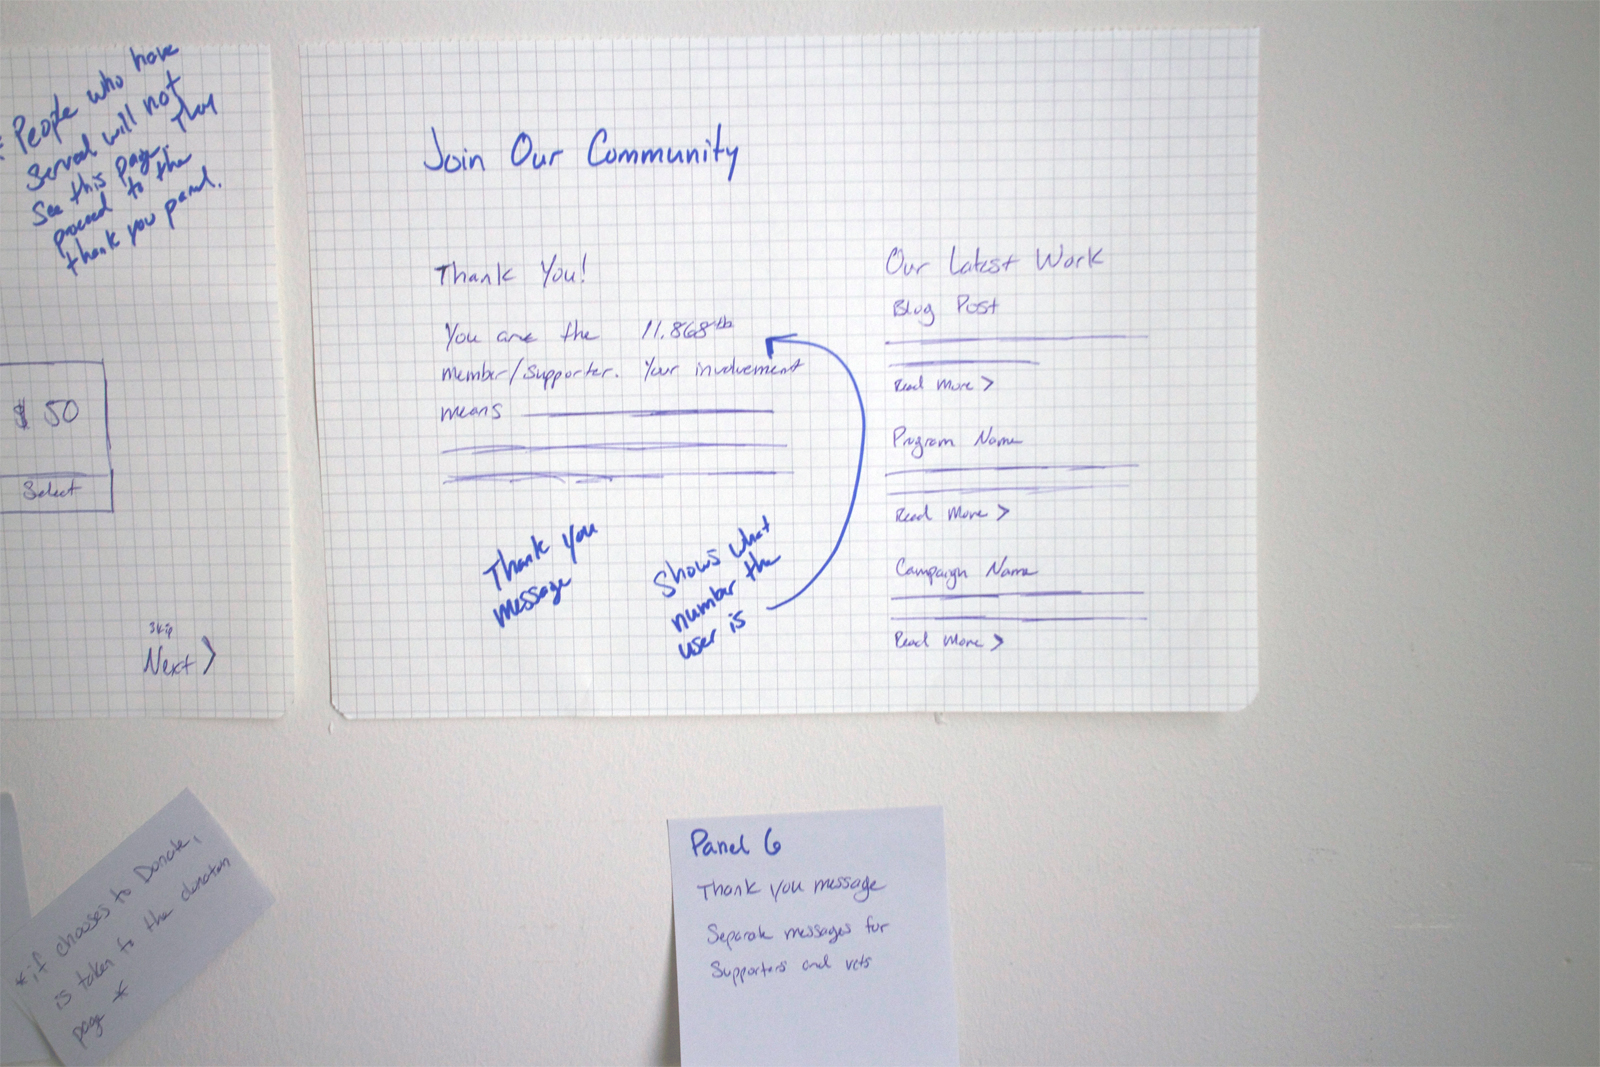 * People who have
Served will not
See this page. They
proceed to the
thank you panel.
$ 50
Select
Skip
Next >
Join Our Community
Thank You!
You are the 11,868th
member/supporter. Your involvement
means
Thank you
message
Shows what
number the
user is
Our Latest Work
Blog Post
Read More >
Program Name
Read More >
Campaign Name
Read More >
*if chooses to Donate,
is taken to the donation
page *
Panel 6
Thank you message
Separate messages for
Supporters and vets